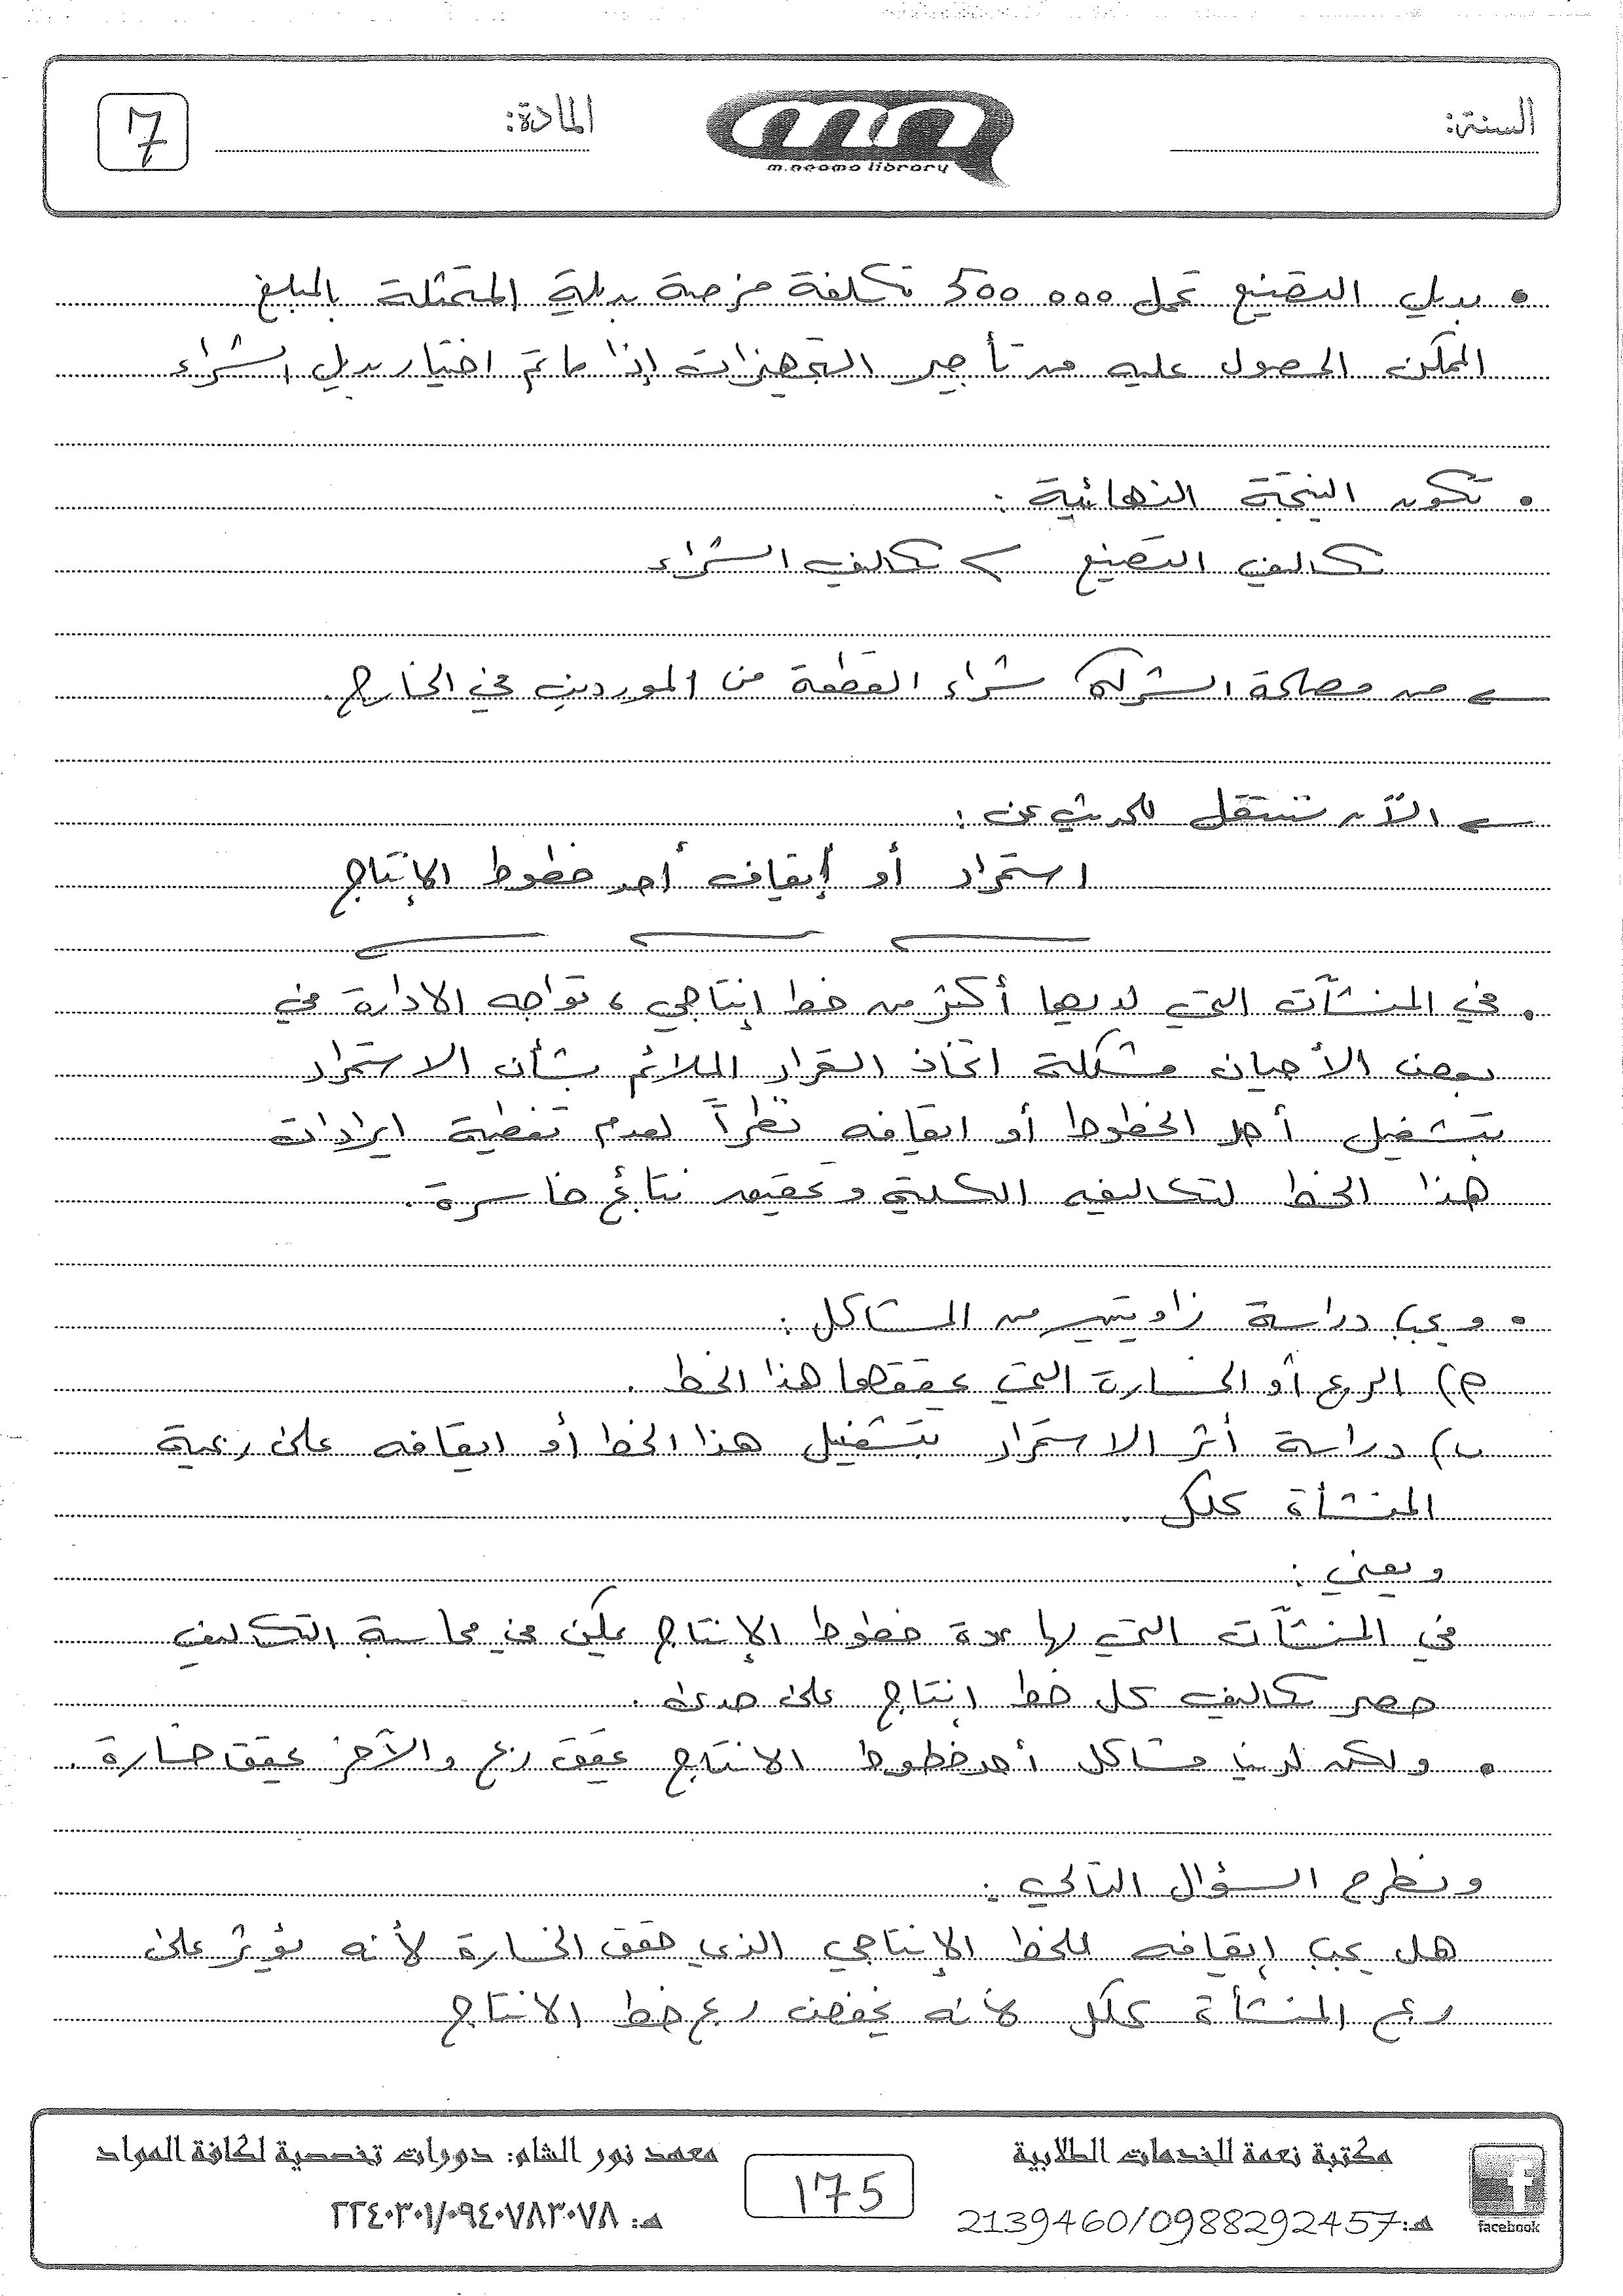 السنة:
m.neoma library
المادة:
7
• بديل التصنيع تحمل 500 000 تكلفة فرصة بديلة المتمثلة بالمبلغ
الممكن الحصول عليه من تأجير التجهيزات إذا ما تم اختيار بديل الشراء
• تكون النتيجة النهائية :
تكاليف التصنيع > تكاليف الشراء
← من مصلحة الشركة شراء القطعة من الموردين في الخارج.
← الآن ننتقل للحديث عن :
استمرار أو إيقاف أحد خطوط الإنتاج
• في المنشآت التي لديها أكثر من خط إنتاجي ، تواجه الادارة في
بعض الأحيان مشكلة اتخاذ القرار الملائم بشأن الاستمرار
بتشغيل أحد الخطوط أو ايقافه نظراً لعدم تغطية ايرادات
هذا الخط لتكاليفه الكلية وتحقيقه نتائج خاسرة .
• ويجب دراسة زاويتين من المشاكل :
م) الربح أو الخسارة التي يحققها هذا الخط .
ب) دراسة أثر الاستمرار بتشغيل هذا الخط أو ايقافه على ربحية
المنشأة ككل .
ويعني :
في المنشآت التي لها عدة خطوط الإنتاج يمكن في محاسبة التكاليف
حصر تكاليف كل خط إنتاج على حدى .
• ولكن لدينا مشاكل أحد خطوط الانتاج يحقق ربح والآخر يحقق خسارة .
ونطرح السؤال التالي :
هل يجب إيقافه للخط الإنتاجي الذي حقق الخسارة لأنه يؤثر على
ربح المنشأة ككل لأنه يخفض ربح خط الانتاج
مكتبة نعمة للخدمات الطلابية
هـ: 2139460/0988292457
facebook
175
معهد نور الشام: دورات تخصصية لكافة المواد
هـ: ٢٢٤٠٣٠١/٠٩٤٠٧٨٣٠٧٨